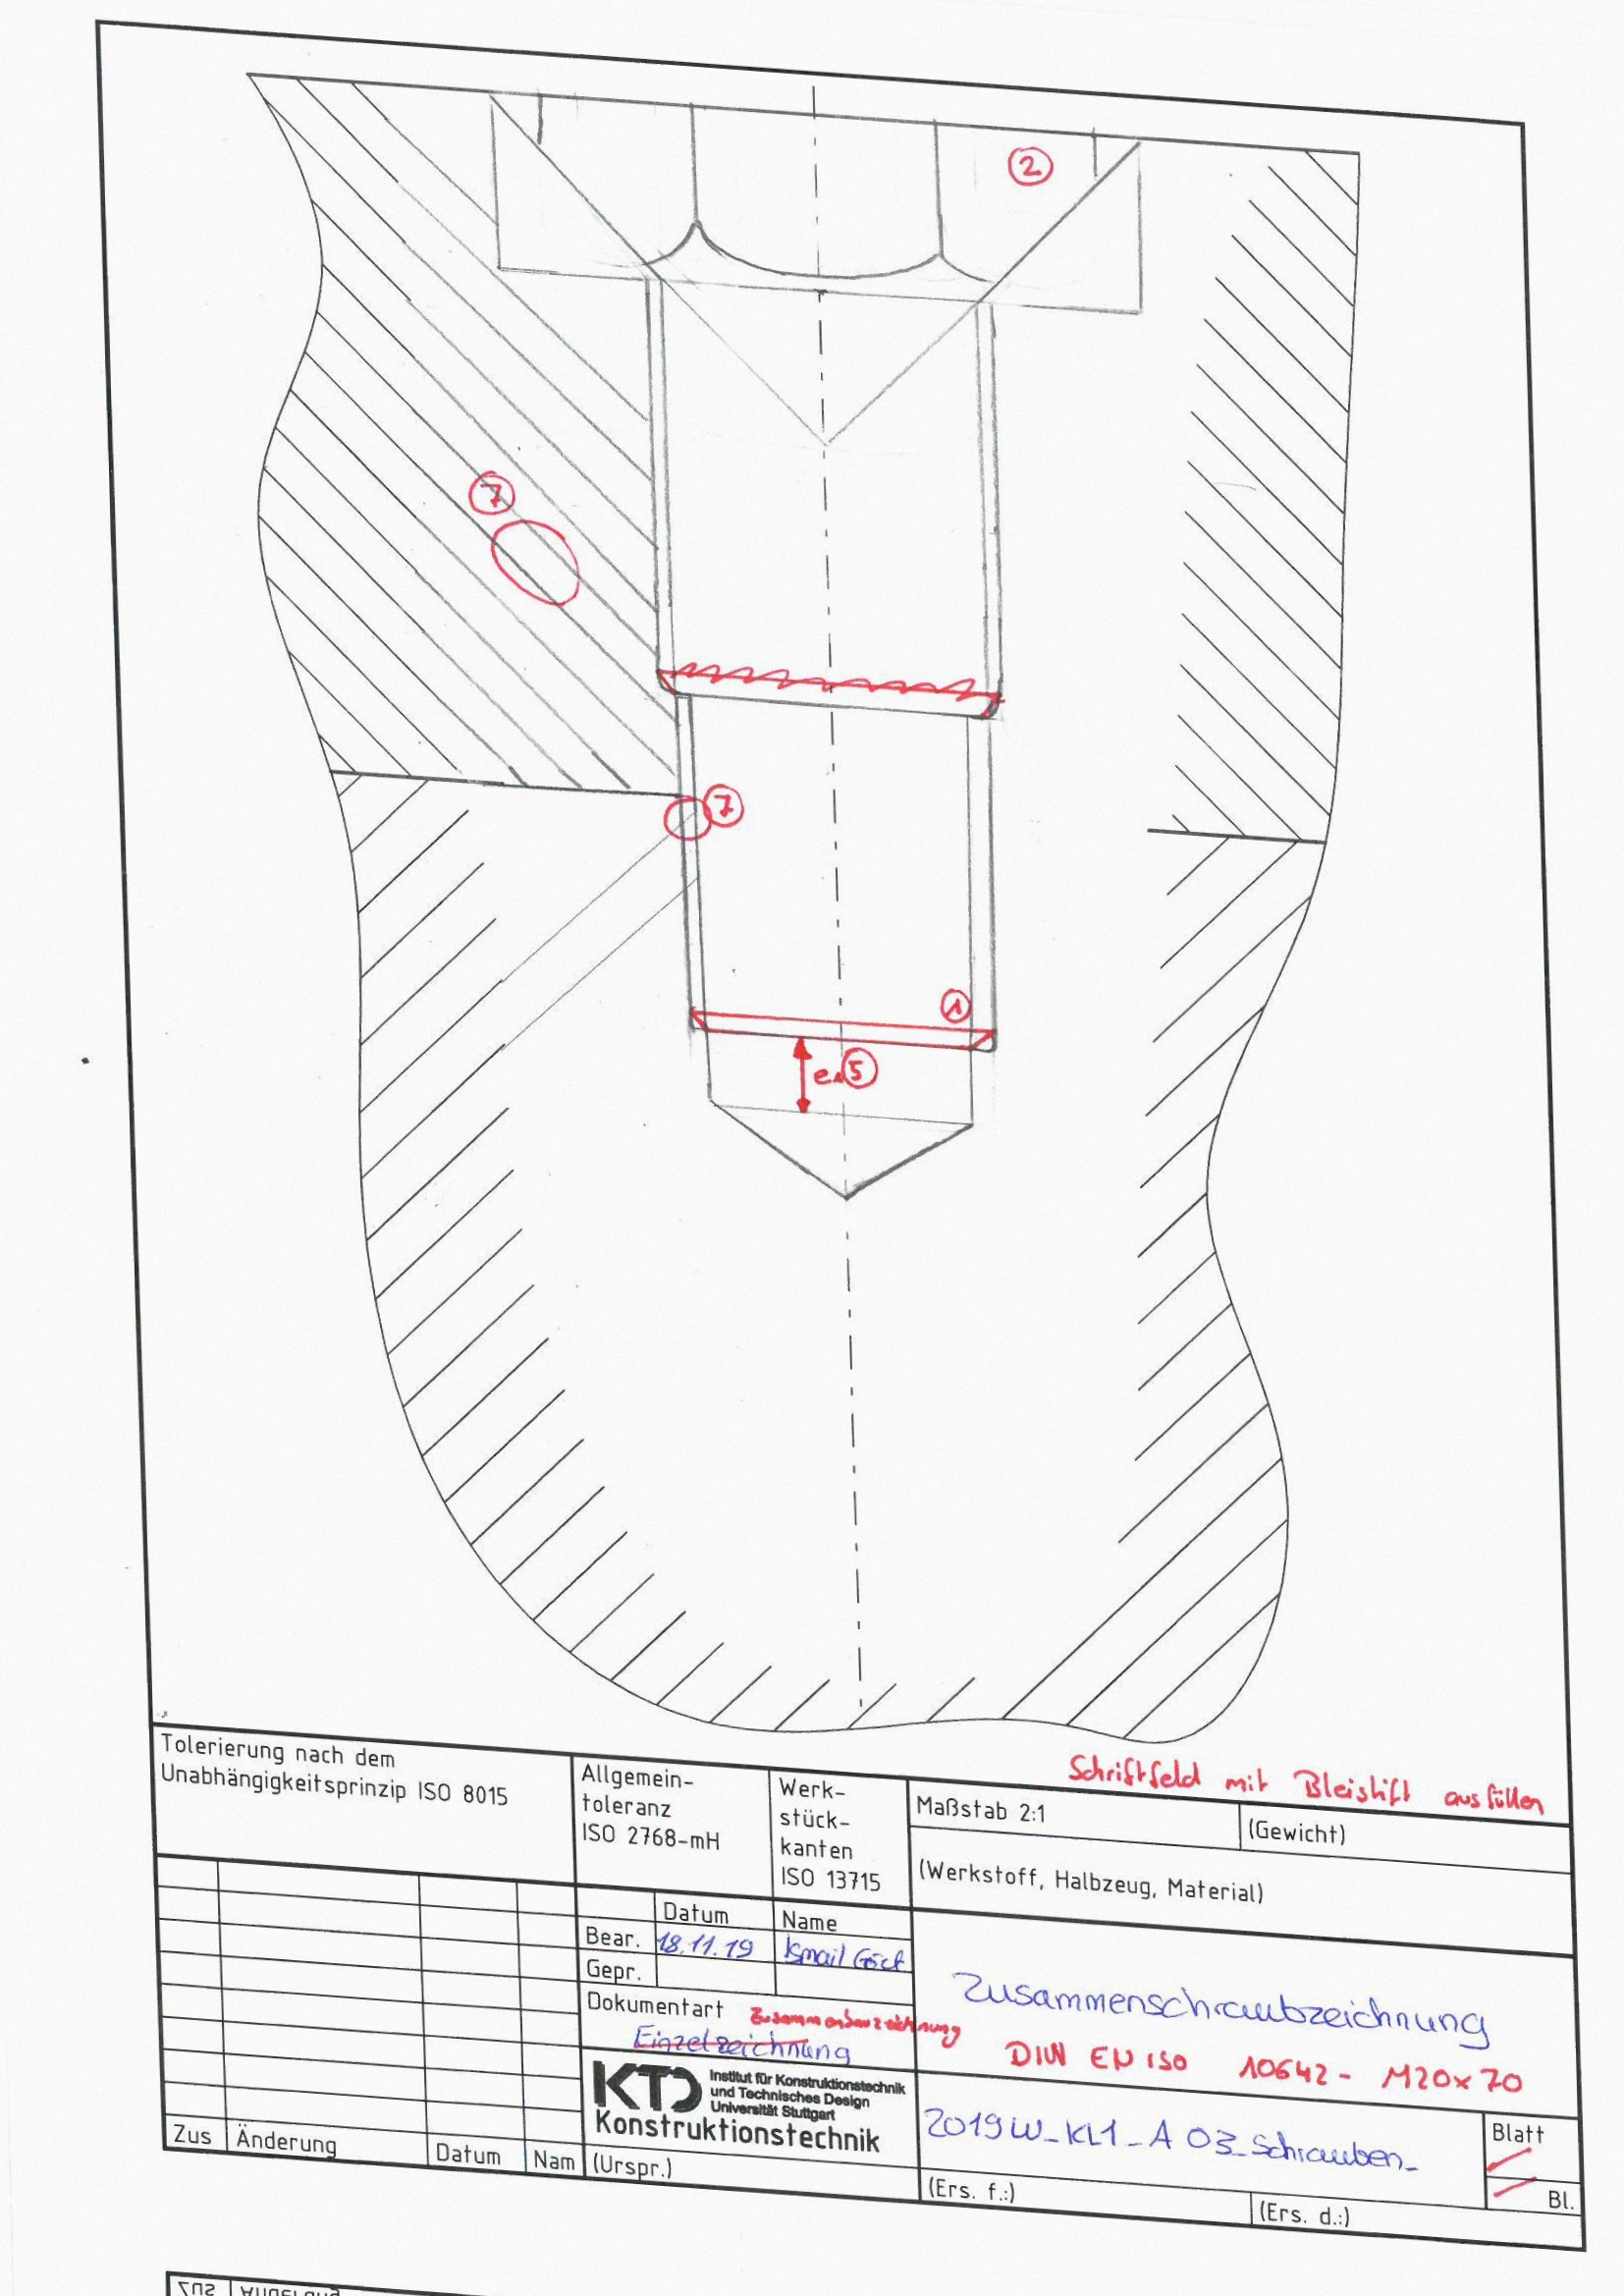 2
7
7
1
e₁ 5
Schriftfeld mit Bleistift ausfüllen
Tolerierung nach dem
Unabhängigkeitsprinzip ISO 8015
Allgemein-
toleranz
ISO 2768-mH
Werk-
stück-
kanten
ISO 13715
Maßstab 2:1
(Gewicht)
(Werkstoff, Halbzeug, Material)
Datum
Name
Bear.
18.11.19
Ismail
Gepr.
Dokumentart
Zusammenbauzeichnung
Einzelzeichnung
Zusammenschraubzeichnung
DIN EN ISO 10642 - M20x70
KTD
Institut für Konstruktionstechnik
und Technisches Design
Universität Stuttgart
Konstruktionstechnik
2019W_KL1_A03_Schrauben_
Blatt
Bl.
Zus
Änderung
Datum
Nam
(Urspr.)
(Ers. f.:)
(Ers. d.:)
Zus
Änderung